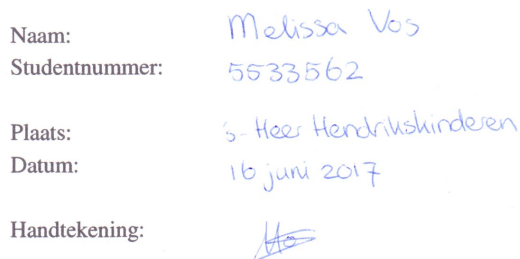 Naam: Melissa Vos
Studentnummer: 5533562
Plaats: 's-Heer Hendrikskinderen
Datum: 16 juni 2017
Handtekening: